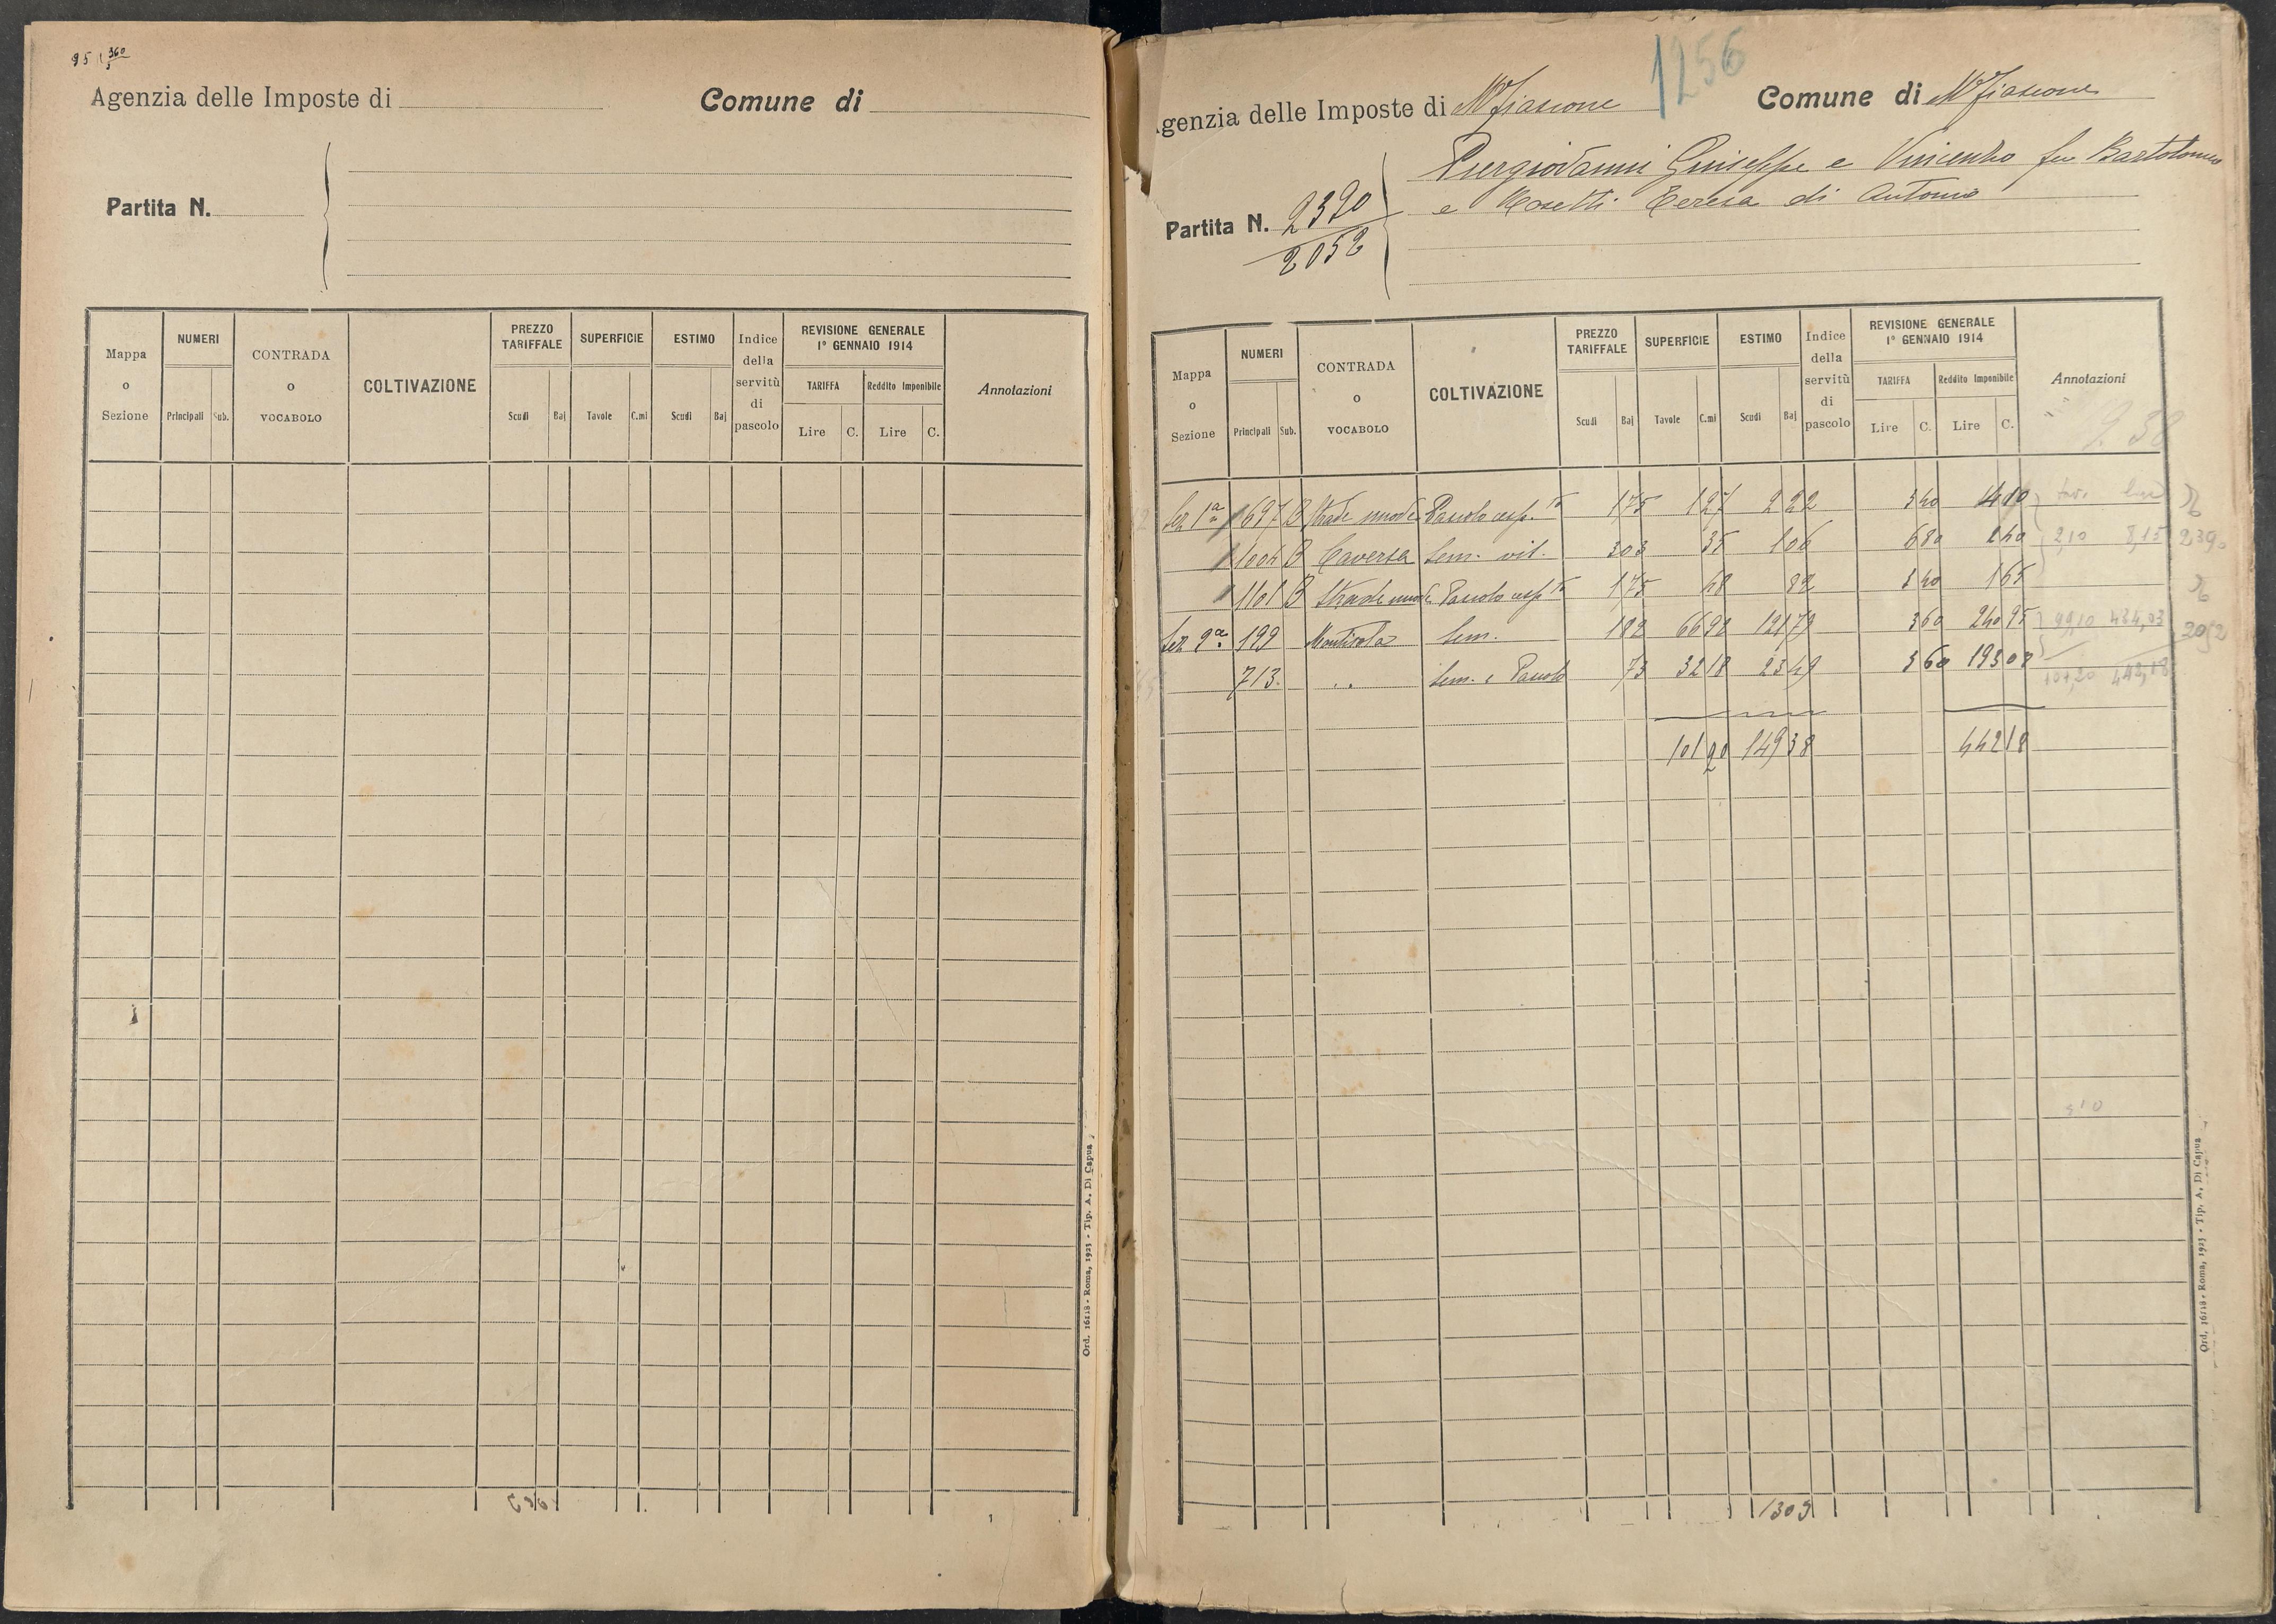 95 360/5
Agenzia delle Imposte di Comune di
Partita N.
Mappa o Sezione NUMERI Principali Sub. CONTRADA o VOCABOLO COLTIVAZIONE PREZZO TARIFFALE Scudi Baj SUPERFICIE Tavole C.mi ESTIMO Scudi Baj Indice della servitù di pascolo REVISIONE GENERALE 1° GENNAIO 1914 TARIFFA Lire C. Reddito Imponibile Lire C. Annotazioni
Ord. 16118 - Roma, 1923 - Tip. A. Di Capua
1256
Agenzia delle Imposte di M Fiascone Comune di M Fiascone
Piergiovanni Giuseppe e Vincenzo fu Bartolomeo
e Rosetti Teresa di Antonio
Partita N. 2390
2052
Mappa o Sezione NUMERI Principali Sub. CONTRADA o VOCABOLO COLTIVAZIONE PREZZO TARIFFALE Scudi Baj SUPERFICIE Tavole C.mi ESTIMO Scudi Baj Indice della servitù di pascolo REVISIONE GENERALE 1° GENNAIO 1914 TARIFFA Lire C. Reddito Imponibile Lire C. Annotazioni
9.38
Sez 1a 697 B Strade nuove Pascolo cesp.to 175 127 222 340 410
1004 B Caversa Sem. vit. 303 35 106 680 240 2,10 8,15 2390
1101 B Strade nuove Pascolo cesp.to 175 48 82 340 165
Sez 9a 199 Montisola Sem. 182 6692 12179 360 240 95 99,10 434,03 2052
713 " Sem. e Pascolo 73 3218 2349 360 193 08
101,20 442,18
101 20 149 38 442 18
1309
Ord. 16118 - Roma, 1923 - Tip. A. Di Capua